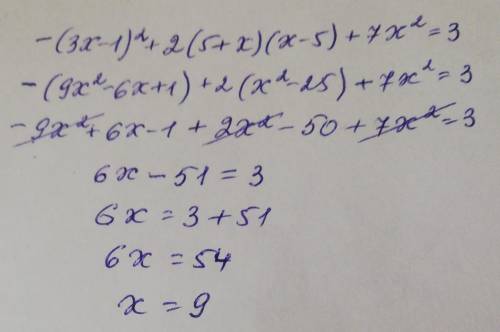 -(3x-1)²+2(5+x)(x-5)+7x²=3
-(9x²-6x+1)+2(x²-25)+7x²=3
-9x²+6x-1+2x²-50+7x²=3
6x-51=3
6x=3+51
6x=54
x=9